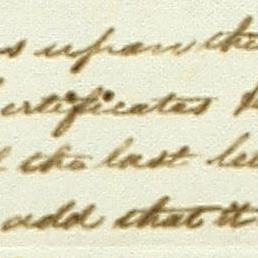 upon the
certificates
the last
add that it